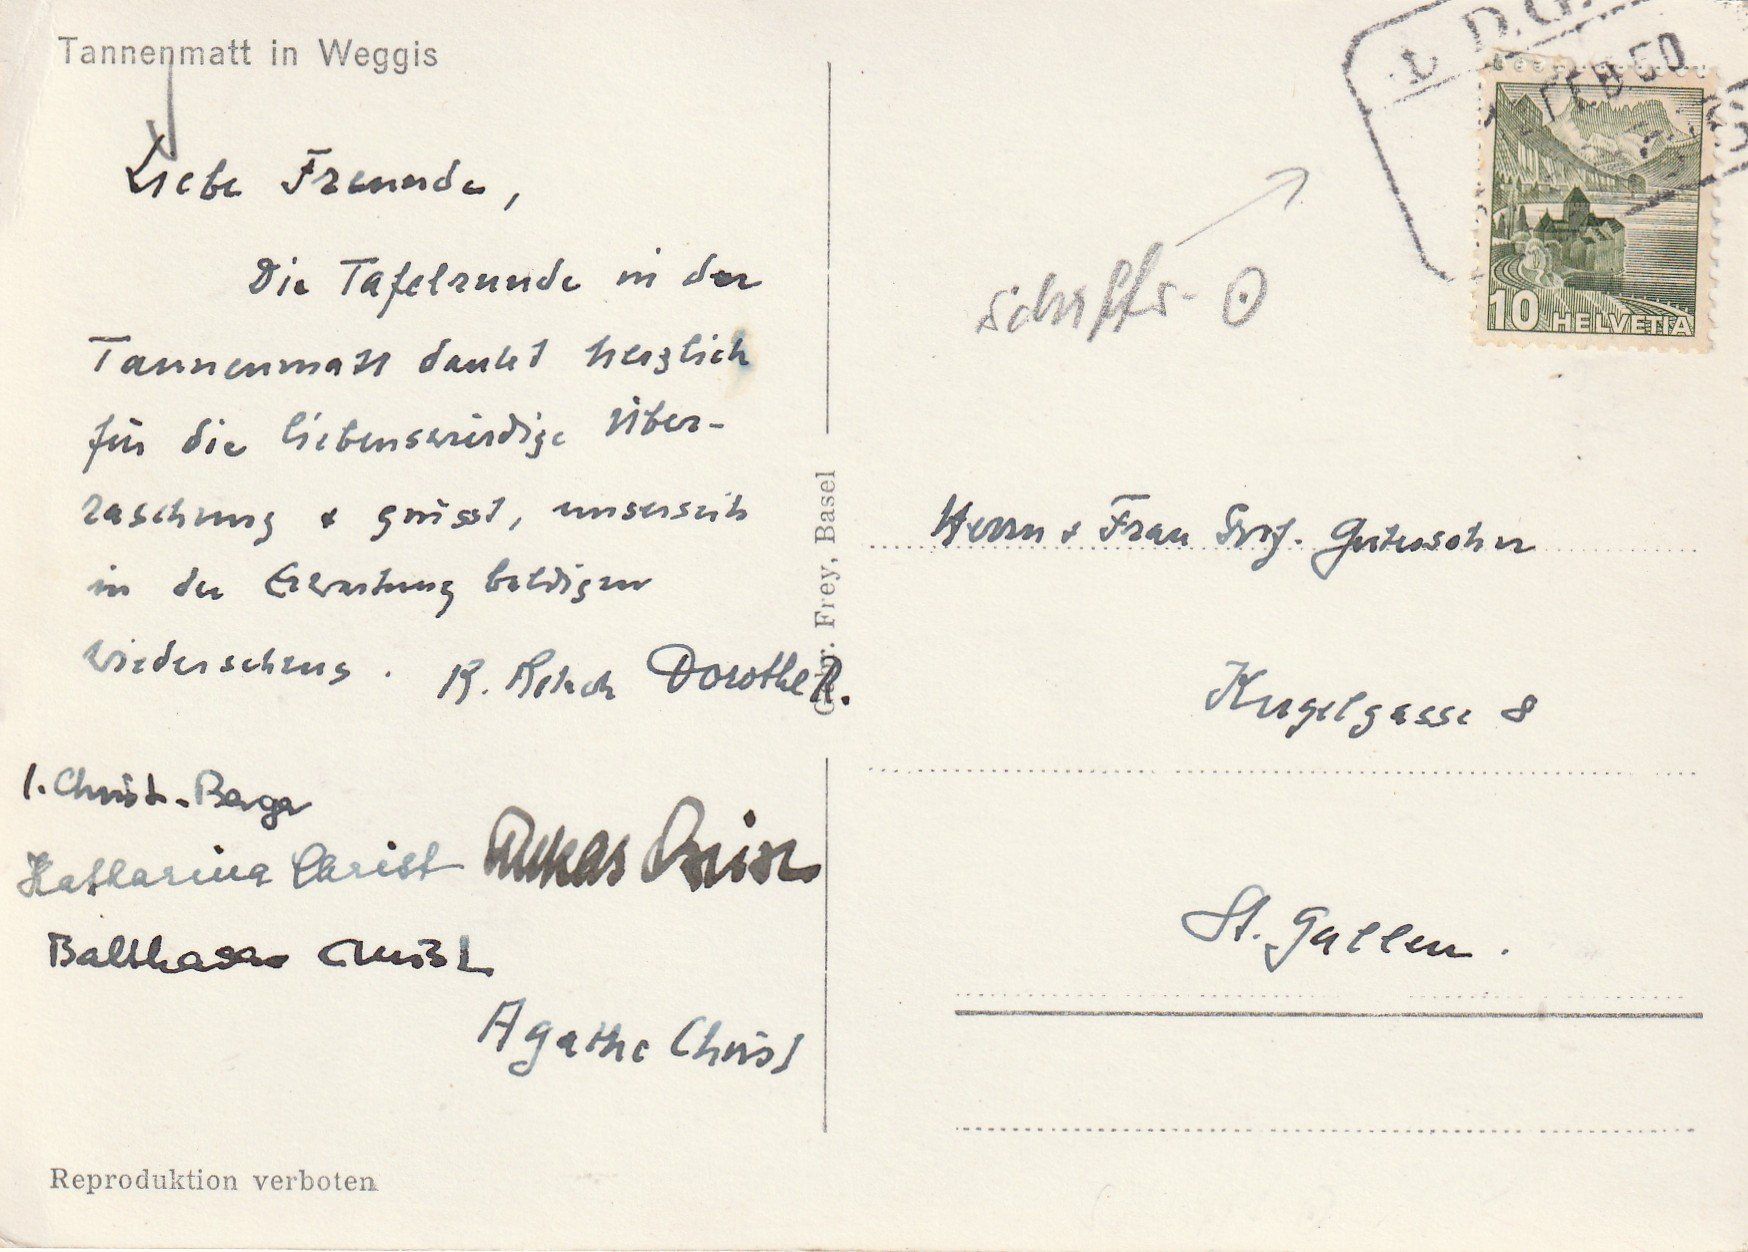 Tannenmatt in Weggis
Liebe Freunde,
Die Tafelrunde in der
Tannenmatt dankt herzlich
für die liebenswürdige Über-
raschung & grüsst, unserseits
in der Erwartung baldigen
Wiedersehens.
K. Dorothe R.
I. Christ-Berger
Katharina Christ
Lukas Christ
Balthasar Christ
Agathe Christ
Reproduktion verboten
Gebr. Frey, Basel
FEB 50
10 HELVETIA
Schiffs-
Herrn & Frau Prof. Gutersohn
Kugelgasse 8
St. Gallen.